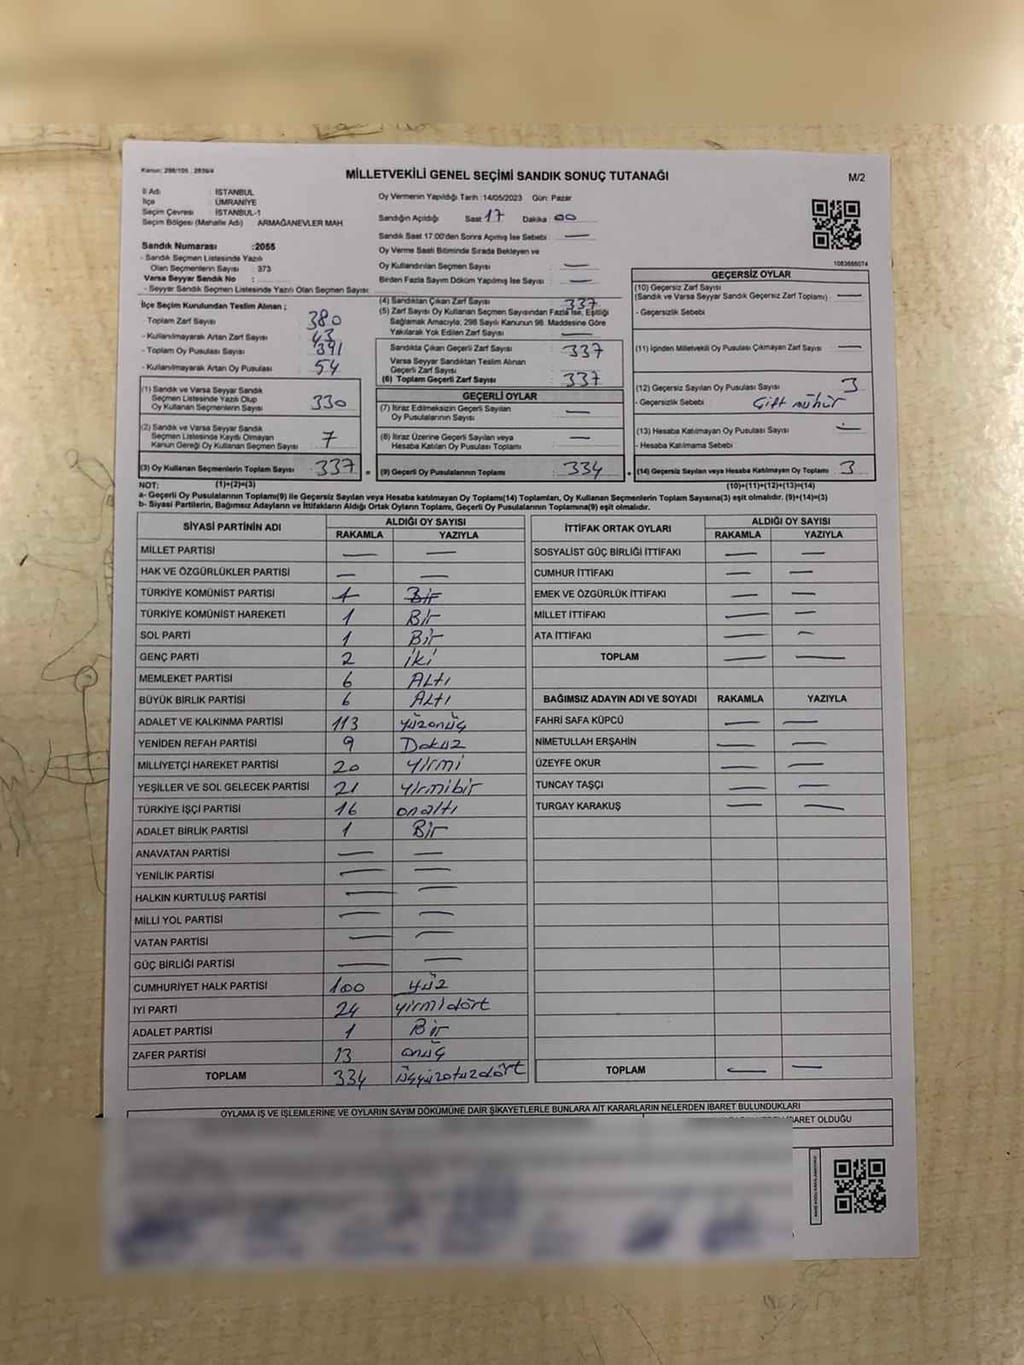 Kanun: 298/105 ; 2839/4
MİLLETVEKİLİ GENEL SEÇİMİ SANDIK SONUÇ TUTANAĞI
M/2
İl Adı : İSTANBUL
İlçe : ÜMRANİYE
Seçim Çevresi : İSTANBUL-1
Seçim Bölgesi (Mahalle Adı) : ARMAĞANEVLER MAH
Sandık Numarası :2055
- Sandık Seçmen Listesinde Yazılı
Olan Seçmenlerin Sayısı : 373
Varsa Seyyar Sandık No :
- Seyyar Sandık Seçmen Listesinde Yazılı Olan Seçmen Sayısı:
Oy Vermenin Yapıldığı Tarih :14/05/2023 Gün: Pazar
Sandığın Açıldığı Saat 17 Dakika 00
Sandık Saat 17.00'den Sonra Açılmış İse Sebebi —
Oy Verme Saati Bitiminde Sırada Bekleyen ve
Oy Kullandırılan Seçmen Sayısı —
Birden Fazla Sayım Döküm Yapılmış İse Sayısı —
1083666074
İlçe Seçim Kurulundan Teslim Alınan ;
- Toplam Zarf Sayısı 380
- Kullanılmayarak Artan Zarf Sayısı 43
- Toplam Oy Pusulası Sayısı 391
- Kullanılmayarak Artan Oy Pusulası 54
(1) Sandık ve Varsa Seyyar Sandık
Seçmen Listesinde Yazılı Olup
Oy Kullanan Seçmenlerin Sayısı 330
(2) Sandık ve Varsa Seyyar Sandık
Seçmen Listesinde Kayıtlı Olmayan
Kanun Gereği Oy Kullanan Seçmen Sayısı 7
(3) Oy Kullanan Seçmenlerin Toplam Sayısı 337
(1)+(2)=(3)
(4) Sandıktan Çıkan Zarf Sayısı 337
(5) Zarf Sayısı Oy Kullanan Seçmen Sayısından Fazla İse, Eşitliği
Sağlamak Amacıyla; 298 Sayılı Kanunun 98. Maddesine Göre
Yakılarak Yok Edilen Zarf Sayısı —
Sandıkta Çıkan Geçerli Zarf Sayısı 337
Varsa Seyyar Sandıktan Teslim Alınan
Geçerli Zarf Sayısı
(6) Toplam Geçerli Zarf Sayısı 337
GEÇERLİ OYLAR
(7) İtiraz Edilmeksizin Geçerli Sayılan
Oy Pusulalarının Sayısı —
(8) İtiraz Üzerine Geçerli Sayılan veya
Hesaba Katılan Oy Pusulası Toplamı —
= (9) Geçerli Oy Pusulalarının Toplamı 334
GEÇERSİZ OYLAR
(10) Geçersiz Zarf Sayısı
(Sandık ve Varsa Seyyar Sandık Geçersiz Zarf Toplamı) —
- Geçersizlik Sebebi
(11) İçinden Milletvekili Oy Pusulası Çıkmayan Zarf Sayısı —
(12) Geçersiz Sayılan Oy Pusulası Sayısı 3
- Geçersizlik Sebebi Çift mühür
(13) Hesaba Katılmayan Oy Pusulası Sayısı —
- Hesaba Katılmama Sebebi
+ (14) Geçersiz Sayılan veya Hesaba Katılmayan Oy Toplamı 3
(10)+(11)+(12)+(13)=(14)
NOT:
a- Geçerli Oy Pusulalarının Toplamı(9) ile Geçersiz Sayılan veya Hesaba katılmayan Oy Toplamı(14) Toplamları, Oy Kullanan Seçmenlerin Toplam Sayısına(3) eşit olmalıdır. (9)+(14)=(3)
b- Siyasi Partilerin, Bağımsız Adayların ve İttifakların Aldığı Ortak Oyların Toplamı, Geçerli Oy Pusulalarının Toplamına(9) eşit olmalıdır.
SİYASİ PARTİNİN ADI ALDIĞI OY SAYISI
RAKAMLA YAZIYLA
MİLLET PARTİSİ — —
HAK VE ÖZGÜRLÜKLER PARTİSİ — —
TÜRKİYE KOMÜNİST PARTİSİ 1 Bir
TÜRKİYE KOMÜNİST HAREKETİ 1 Bir
SOL PARTİ 1 Bir
GENÇ PARTİ 2 iki
MEMLEKET PARTİSİ 6 ALTI
BÜYÜK BİRLİK PARTİSİ 6 ALTI
ADALET VE KALKINMA PARTİSİ 113 yüzonüç
YENİDEN REFAH PARTİSİ 9 Dokuz
MİLLİYETÇİ HAREKET PARTİSİ 20 yirmi
YEŞİLLER VE SOL GELECEK PARTİSİ 21 yirmibir
TÜRKİYE İŞÇİ PARTİSİ 16 onaltı
ADALET BİRLİK PARTİSİ 1 Bir
ANAVATAN PARTİSİ — —
YENİLİK PARTİSİ — —
HALKIN KURTULUŞ PARTİSİ — —
MİLLİ YOL PARTİSİ — —
VATAN PARTİSİ — —
GÜÇ BİRLİĞİ PARTİSİ — —
CUMHURİYET HALK PARTİSİ 100 yüz
İYİ PARTİ 24 yirmidört
ADALET PARTİSİ 1 Bir
ZAFER PARTİSİ 13 onüç
TOPLAM 334 üçyüzotuzdört
İTTİFAK ORTAK OYLARI ALDIĞI OY SAYISI
RAKAMLA YAZIYLA
SOSYALİST GÜÇ BİRLİĞİ İTTİFAKI — —
CUMHUR İTTİFAKI — —
EMEK VE ÖZGÜRLÜK İTTİFAKI — —
MİLLET İTTİFAKI — —
ATA İTTİFAKI — —
TOPLAM — —
BAĞIMSIZ ADAYIN ADI VE SOYADI RAKAMLA YAZIYLA
FAHRİ SAFA KÜPCÜ — —
NİMETULLAH ERŞAHİN — —
ÜZEYFE OKUR — —
TUNCAY TAŞÇI — —
TURGAY KARAKUŞ — —
TOPLAM — —
OYLAMA İŞ VE İŞLEMLERİNE VE OYLARIN SAYIM DÖKÜMÜNE DAİR ŞİKAYETLERLE BUNLARA AİT KARARLARIN NELERDEN İBARET BULUNDUKLARI
İBARET OLDUĞU